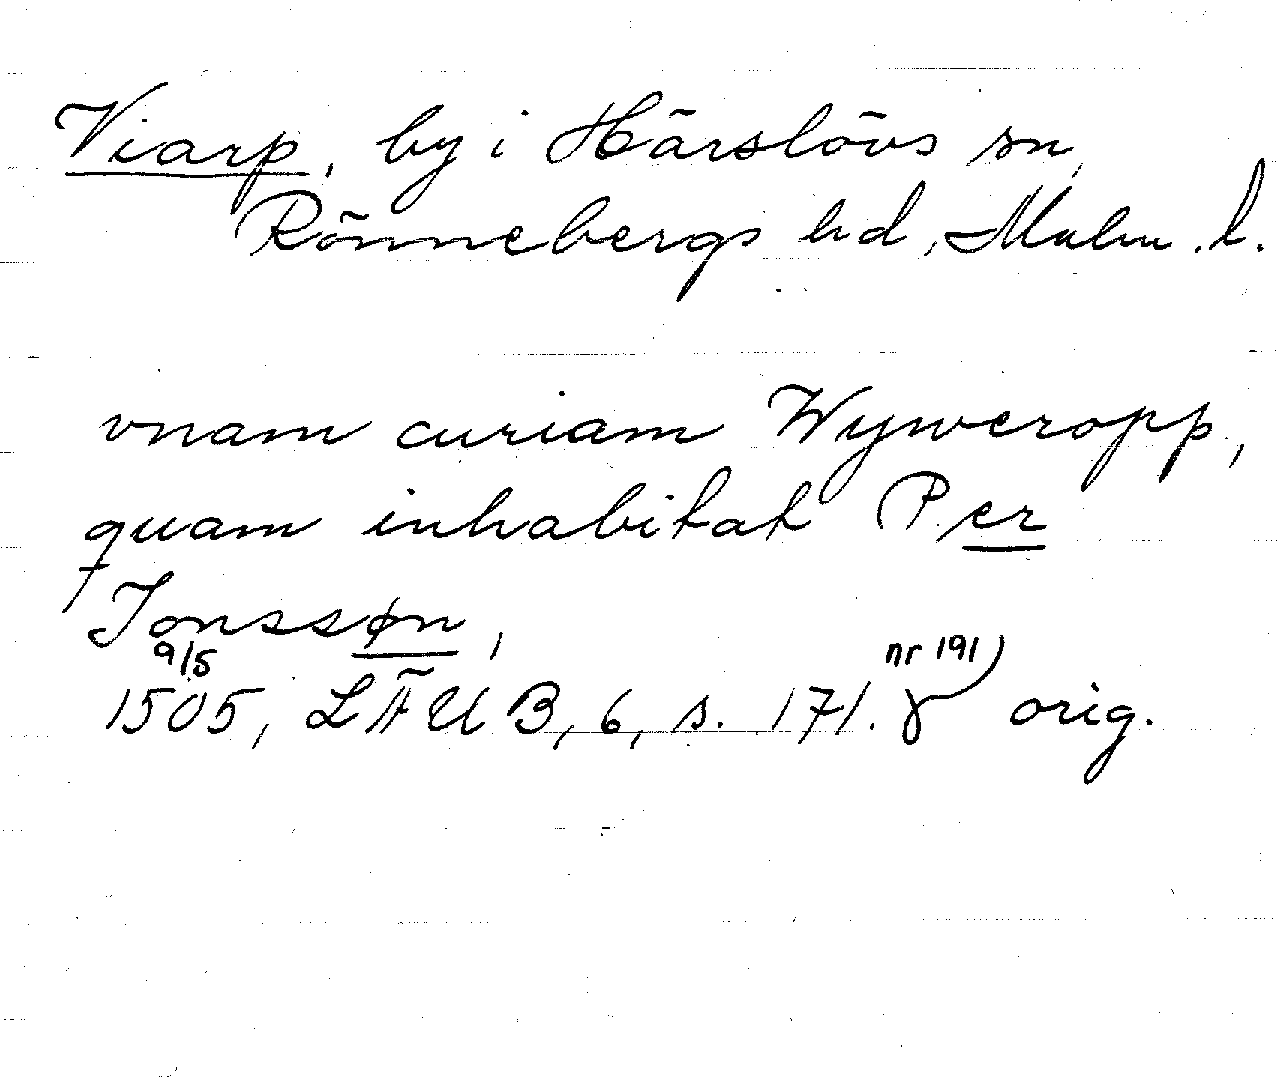 Viarp, by i Härslövs sn,
Rönnebergs hd, Malm. l.
vnam curiam Wyweropp,
quam inhabitat Per
Jonssøn,
9/5 nr 191
1505, LÄUB, 6, s. 171. orig.